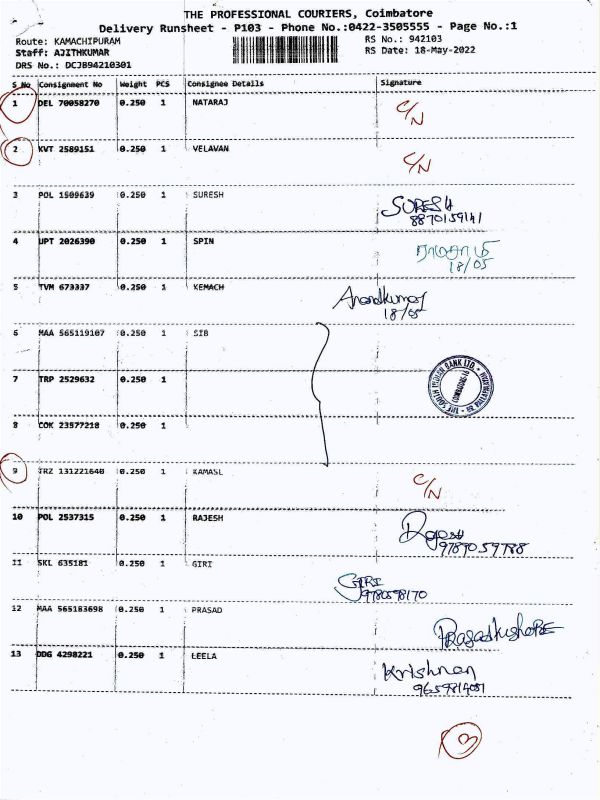 THE PROFESSIONAL COURIERS, Coimbatore
Delivery Runsheet - P103 - Phone No.:0422-3505555 - Page No.:1
Route: KAMACHIPURAM RS No.: 942103
Staff: AJITHKUMAR RS Date: 18-May-2022
DRS No.: DCJB94210301
S No Consignment No Weight PCS Consignee Details Signature
1 DEL 70058270 0.250 1 NATARAJ C/N
2 KVT 2589151 0.250 1 VELAVAN C/N
3 POL 1509639 0.250 1 SURESH SURESH
8870159141
4 UPT 2026390 0.250 1 SPIN ராமசாமி
18/05
5 TVM 673337 0.250 1 KEMACH Anandkumar
18/05
6 MAA 565119107 0.250 1 SIB
7 TRP 2529632 0.250 1
THE SOUTH INDIAN BANK LTD.
8 COK 23577218 0.250 1
9 TRZ 131221640 0.250 1 KAMASL C/N
10 POL 2537315 0.250 1 RAJESH Rajesh
9789059788
11 SKL 635181 0.250 1 GIRI GIRI
978058170
12 MAA 565183698 0.250 1 PRASAD PRasadkishoRE
13 DDG 4298221 0.250 1 LEELA Krishnan
9659814051